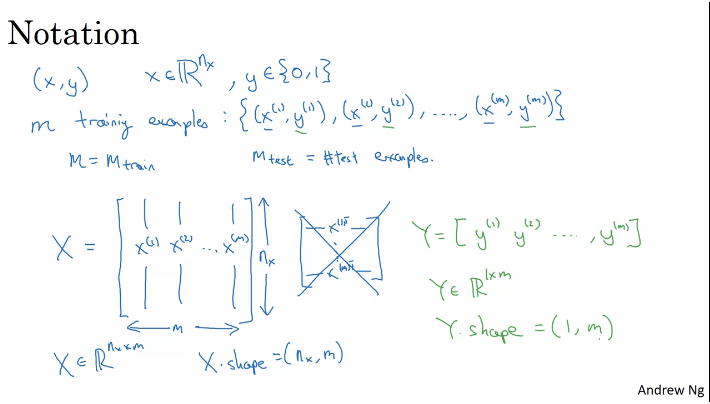 Notation
(x, y) x ∈ ℝ^{n_x}, y ∈ {0, 1}
m training examples : {(x^{(1)}, y^{(1)}), (x^{(2)}, y^{(2)}), ...., (x^{(m)}, y^{(m)})}
M = M_{train} M_{test} = #test examples.
X = [ x^{(1)} x^{(2)} ... x^{(m)} ] n_x
m
x^{(1)T}
⋮
x^{(m)T}
Y = [ y^{(1)} y^{(2)} ...., y^{(m)} ]
Y ∈ ℝ^{1×m}
Y.shape = (1, m)
X ∈ ℝ^{n_x × m} X.shape = (n_x, m)
Andrew Ng